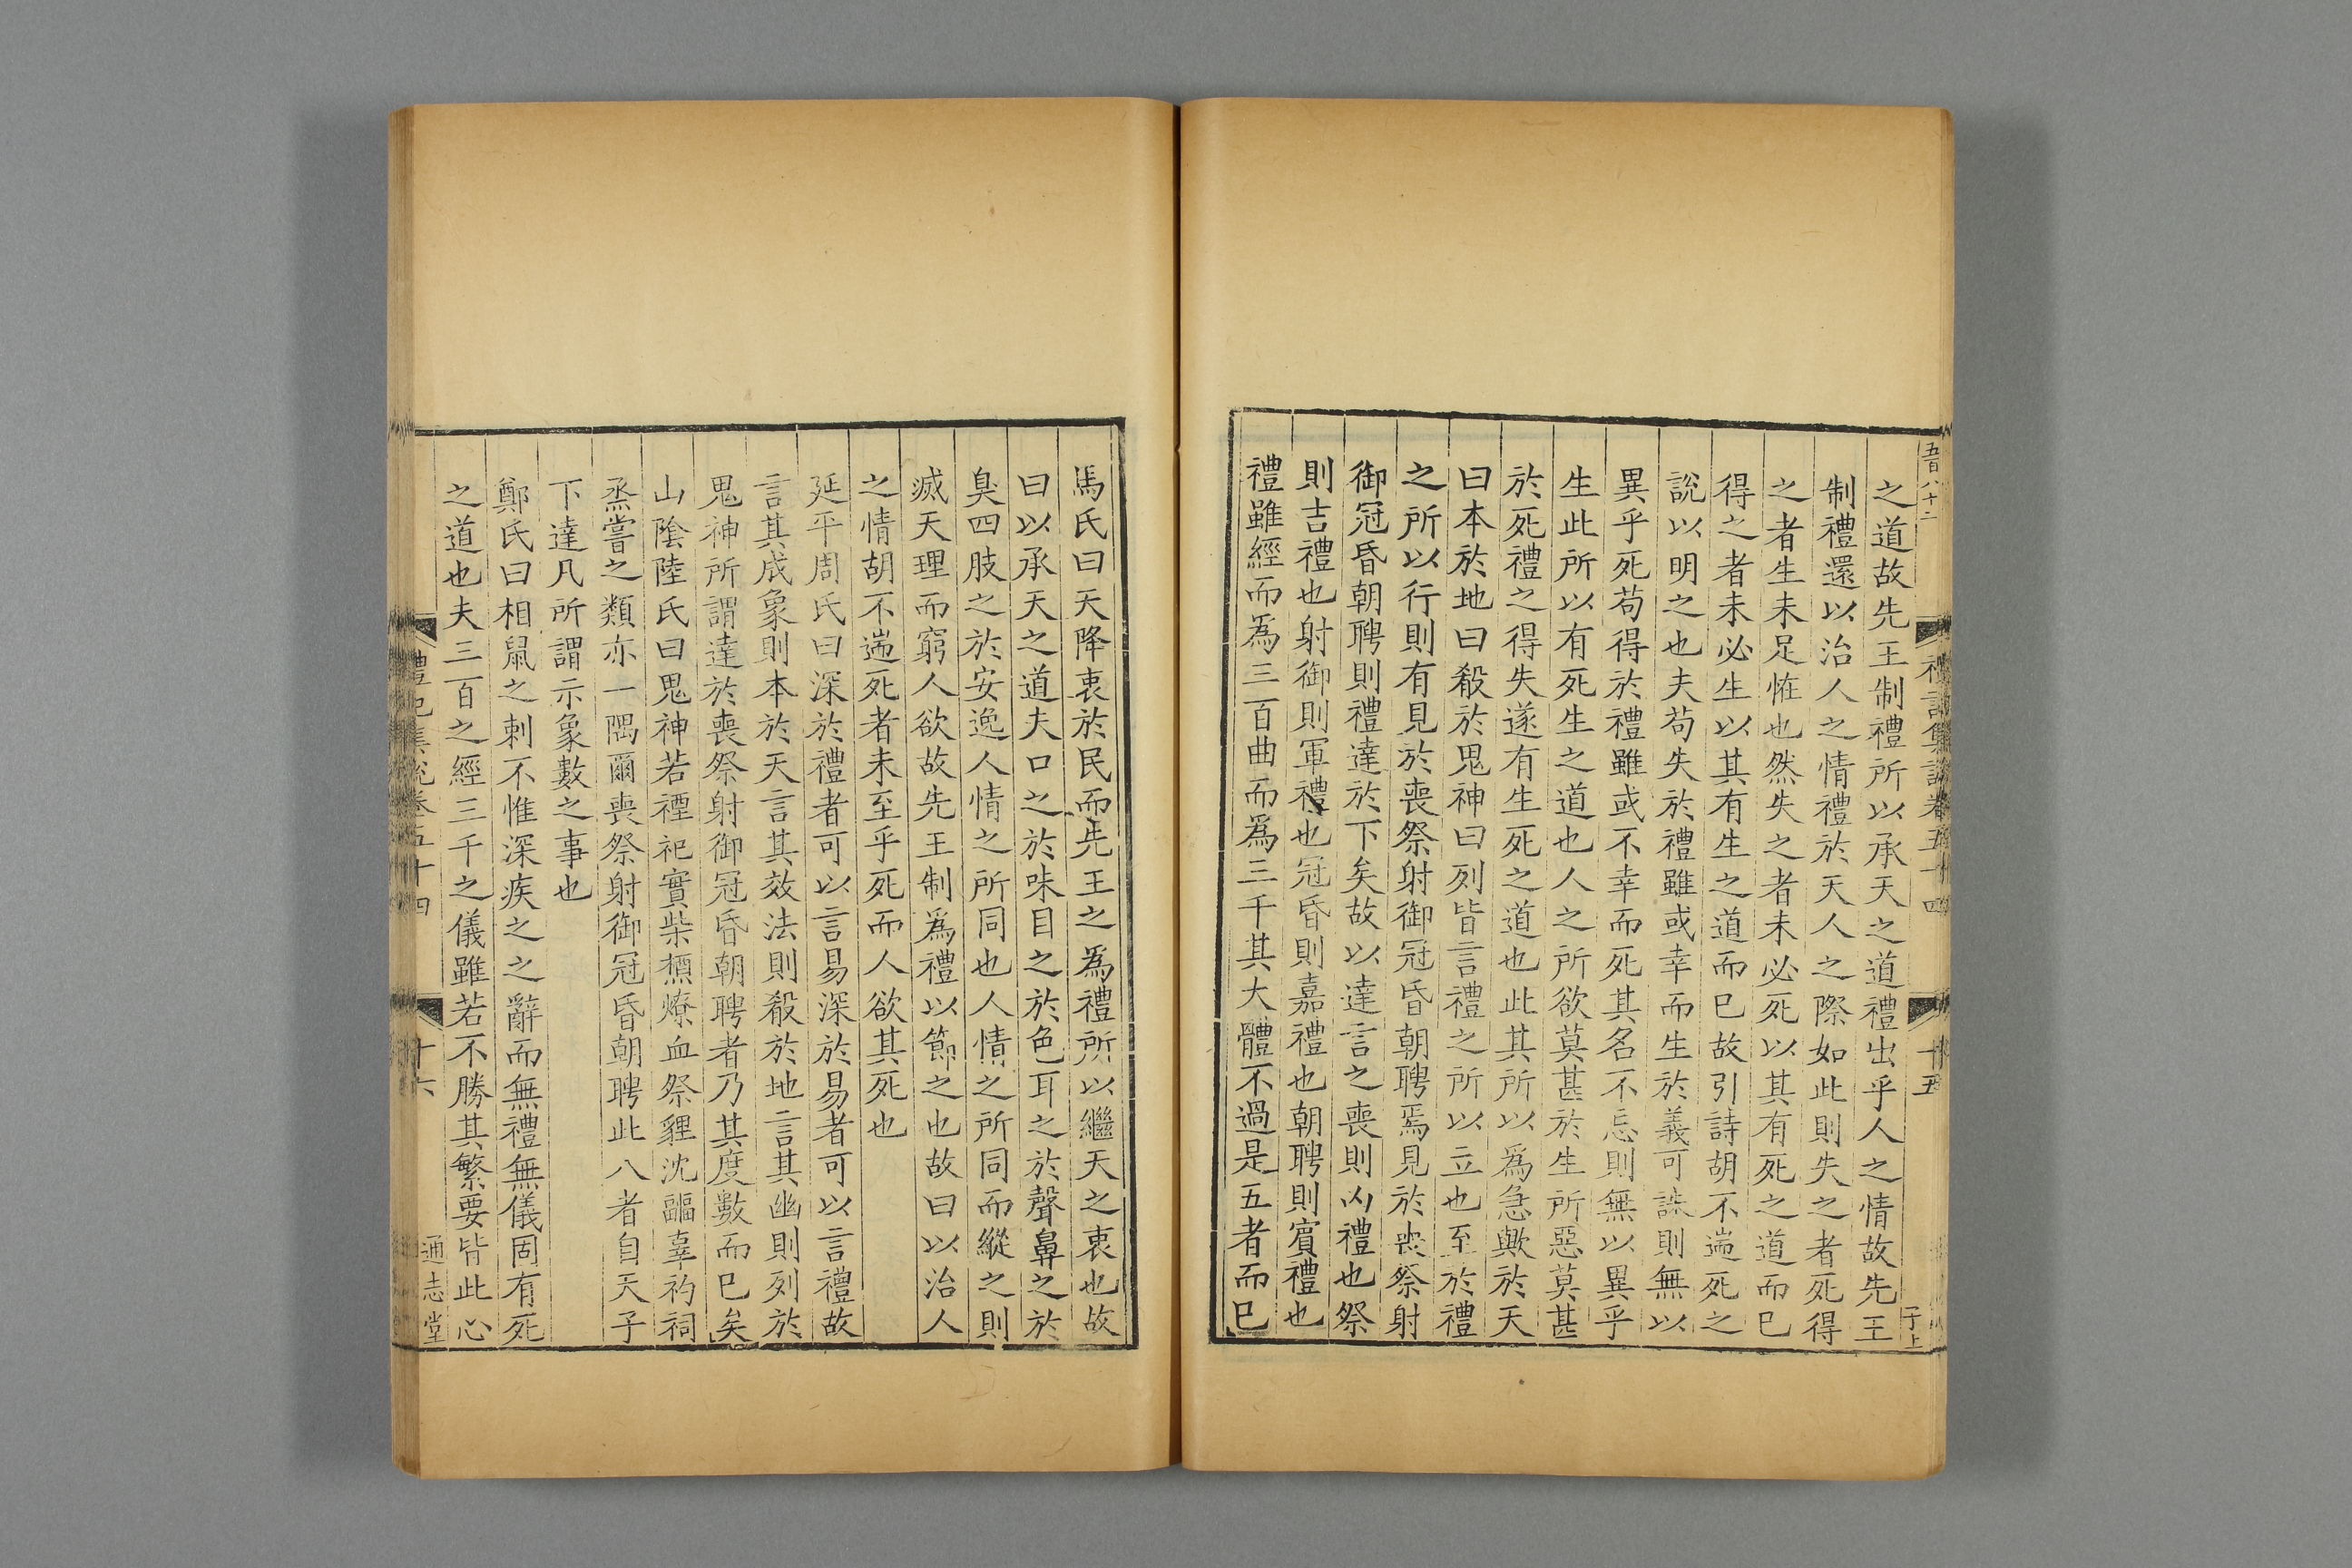 五百八十二
禮記集説卷五十四
十五
于上
之道故先王制禮所以承天之道禮出乎人之情故先王
制禮還以治人之情禮於天人之際如此則失之者死得
之者生未足怪也然失之者未必死以其有死之道而已
得之者未必生以其有生之道而已故引詩胡不遄死之
說以明之也夫苟失於禮雖或幸而生於義可誅則無以
異乎死苟得於禮雖或不幸而死其名不忘則無以異乎
生此所以有死生之道也人之所欲莫甚於生所惡莫甚
於死禮之得失遂有生死之道也此其所以爲急歟於天
曰本於地曰殽於鬼神曰列皆言禮之所以立也至於禮
之所以行則有見於喪祭射御冠昏朝聘焉見於喪祭射
御冠昏朝聘則禮達於下矣故以達言之喪則凶禮也祭
則吉禮也射御則軍禮也冠昏則嘉禮也朝聘則賓禮也
禮雖經而爲三百曲而爲三千其大體不過是五者而已
馬氏曰天降衷於民而先王之爲禮所以繼天之衷也故
曰以承天之道夫口之於味目之於色耳之於聲鼻之於
臭四肢之於安逸人情之所同也人情之所同而縱之則
滅天理而窮人欲故先王制爲禮以節之也故曰以治人
之情胡不遄死者未至乎死而人欲其死也
延平周氏曰深於禮者可以言易深於易者可以言禮故
言其成象則本於天言其效法則殽於地言其幽則列於
鬼神所謂達於喪祭射御冠昏朝聘者乃其度數而已矣
山陰陸氏曰鬼神若禋祀實柴槱燎血祭貍沈疈辜礿祠
烝嘗之類亦一隅爾喪祭射御冠昏朝聘此八者自天子
下達凡所謂示象數之事也
鄭氏曰相鼠之刺不惟深疾之之辭而無禮無儀固有死
之道也夫三百之經三千之儀雖若不勝其繁要皆此心
禮記集説卷五十四
十六
通志堂